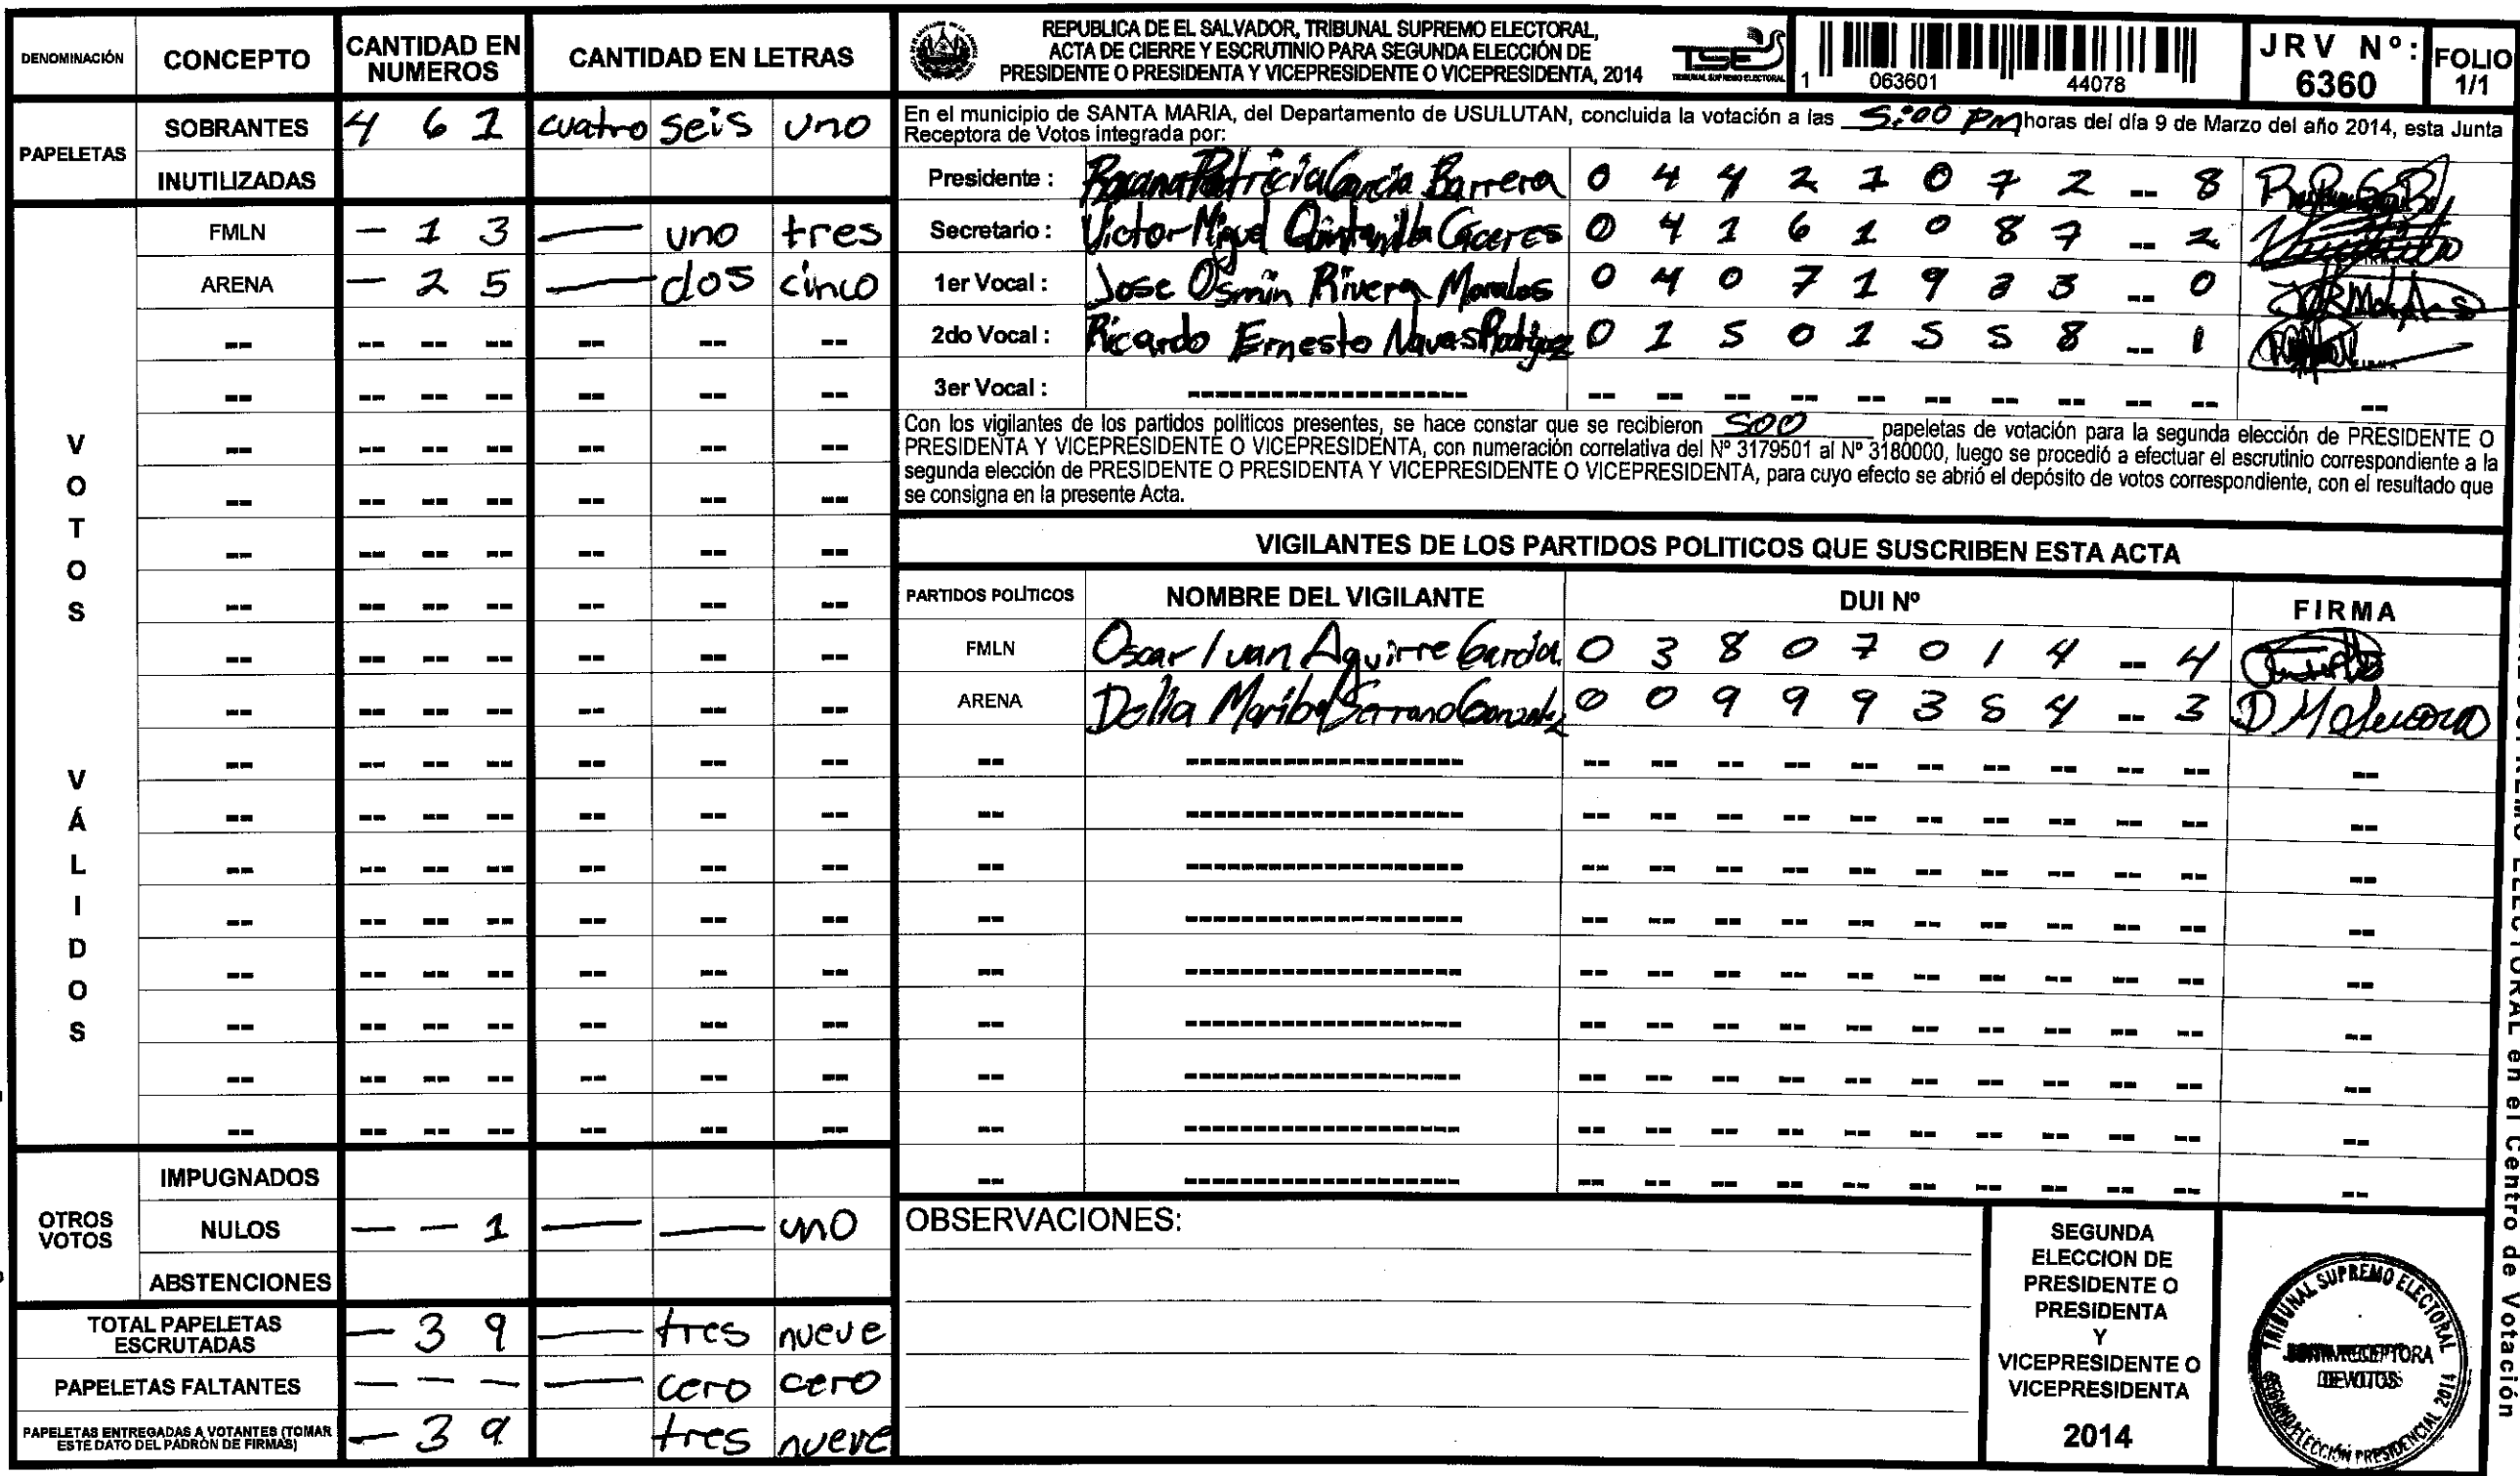 DENOMINACIÓN CONCEPTO CANTIDAD EN NUMEROS CANTIDAD EN LETRAS
PAPELETAS
SOBRANTES 4 6 1 cuatro seis uno
INUTILIZADAS
VOTOS VÁLIDOS
FMLN — 1 3 — uno tres
ARENA — 2 5 — dos cinco
OTROS VOTOS
IMPUGNADOS
NULOS — — 1 — — uno
ABSTENCIONES
TOTAL PAPELETAS ESCRUTADAS — 3 9 — tres nueve
PAPELETAS FALTANTES — — — — cero cero
PAPELETAS ENTREGADAS A VOTANTES (TOMAR ESTE DATO DEL PADRÓN DE FIRMAS) — 3 9 tres nueve
REPUBLICA DE EL SALVADOR, TRIBUNAL SUPREMO ELECTORAL,
ACTA DE CIERRE Y ESCRUTINIO PARA SEGUNDA ELECCIÓN DE
PRESIDENTE O PRESIDENTA Y VICEPRESIDENTE O VICEPRESIDENTA, 2014
TSE
TRIBUNAL SUPREMO ELECTORAL
1 063601 44078
JRV Nº: 6360
FOLIO 1/1
En el municipio de SANTA MARIA, del Departamento de USULUTAN, concluida la votación a las 5:00 PM horas del día 9 de Marzo del año 2014, esta Junta
Receptora de Votos integrada por:
Presidente : Roxana Patricia Garcia Barrera 0 4 4 2 1 0 7 2 -- 8
Secretario : Victor Miguel Quintanilla Caceres 0 4 1 6 1 0 8 7 -- 2
1er Vocal : Jose Osmin Rivera Morales 0 4 0 7 1 9 3 3 -- 0
2do Vocal : Ricardo Ernesto Navas Rodriguez 0 1 5 0 1 5 5 8 -- 1
3er Vocal :
Con los vigilantes de los partidos politicos presentes, se hace constar que se recibieron 500 papeletas de votación para la segunda elección de PRESIDENTE O
PRESIDENTA Y VICEPRESIDENTE O VICEPRESIDENTA, con numeración correlativa del Nº 3179501 al Nº 3180000, luego se procedió a efectuar el escrutinio correspondiente a la
segunda elección de PRESIDENTE O PRESIDENTA Y VICEPRESIDENTE O VICEPRESIDENTA, para cuyo efecto se abrió el depósito de votos correspondiente, con el resultado que
se consigna en la presente Acta.
VIGILANTES DE LOS PARTIDOS POLITICOS QUE SUSCRIBEN ESTA ACTA
PARTIDOS POLÍTICOS NOMBRE DEL VIGILANTE DUI Nº FIRMA
FMLN Oscar Ivan Aguirre Garcia 0 3 8 0 7 0 1 4 -- 4
ARENA Delia Maribel Serrano Gonzalez 0 0 9 9 9 3 5 4 -- 3
OBSERVACIONES:
SEGUNDA
ELECCION DE
PRESIDENTE O
PRESIDENTA
Y
VICEPRESIDENTE O
VICEPRESIDENTA
2014
TRIBUNAL SUPREMO ELECTORAL
JUNTA RECEPTORA
DE VOTOS
SEGUNDA ELECCIÓN PRESIDENCIAL 2014
ELECTORAL en el Centro de Votación